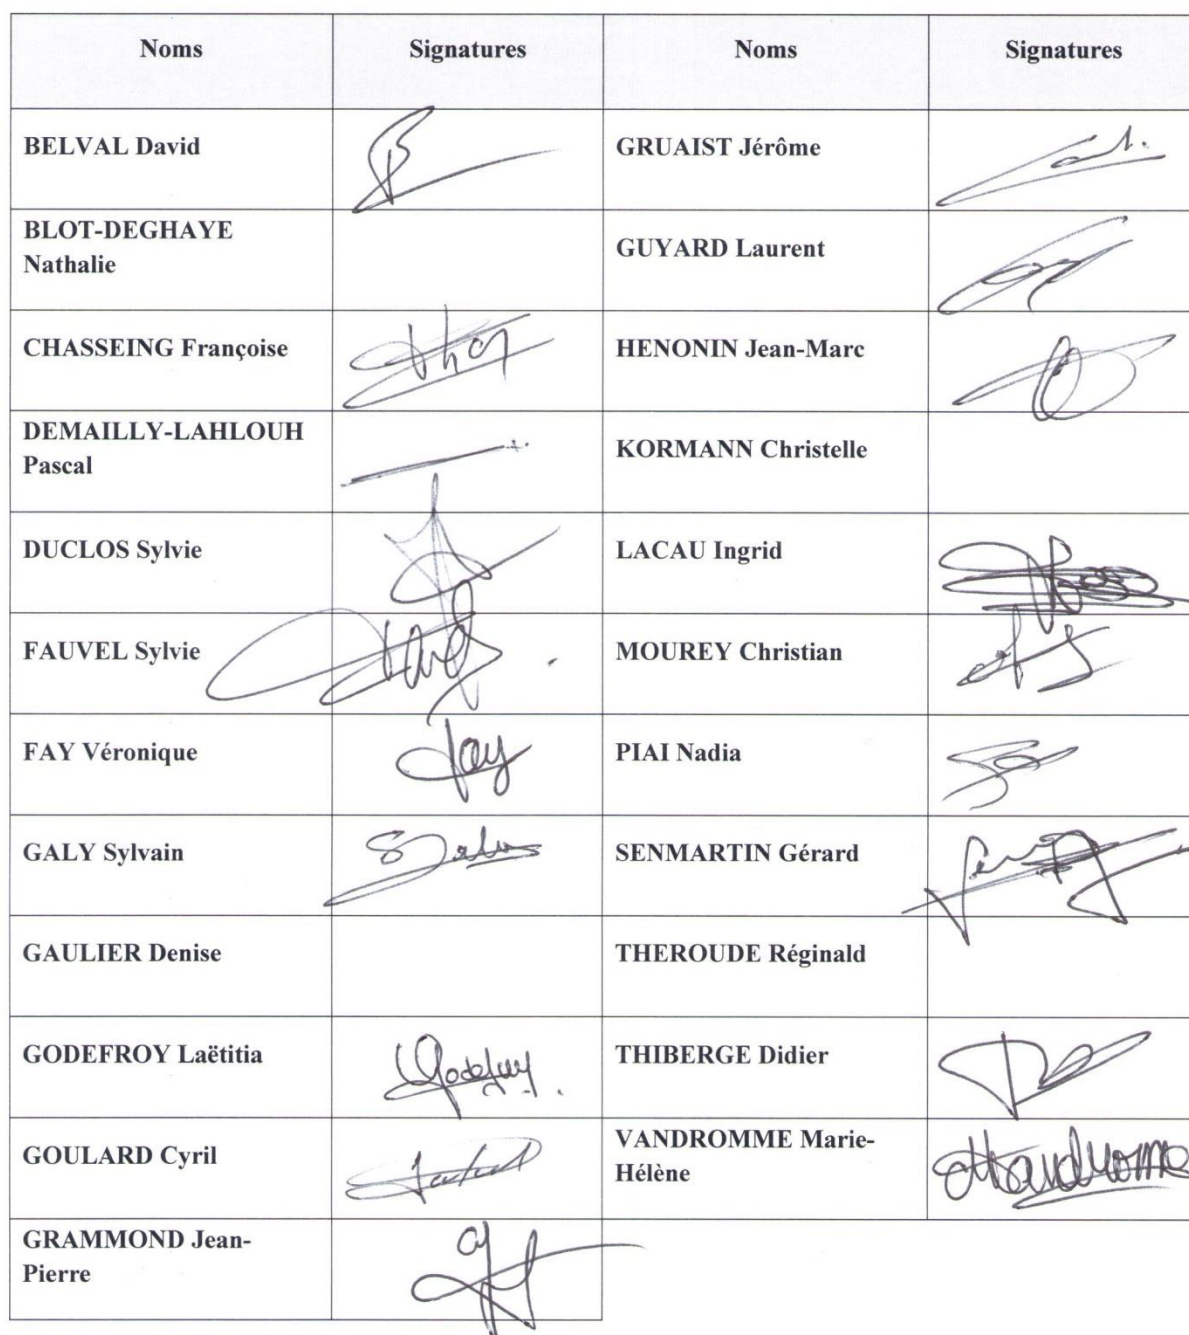 Noms Signatures Noms Signatures
BELVAL David GRUAIST Jérôme
BLOT-DEGHAYE
Nathalie
GUYARD Laurent
CHASSEING Françoise HENONIN Jean-Marc
DEMAILLY-LAHLOUH
Pascal
KORMANN Christelle
DUCLOS Sylvie LACAU Ingrid
FAUVEL Sylvie MOUREY Christian
FAY Véronique Fay PIAI Nadia
GALY Sylvain SENMARTIN Gérard
GAULIER Denise THEROUDE Réginald
GODEFROY Laëtitia Godefroy THIBERGE Didier
GOULARD Cyril
VANDROMME Marie-
Hélène
GRAMMOND Jean-
Pierre